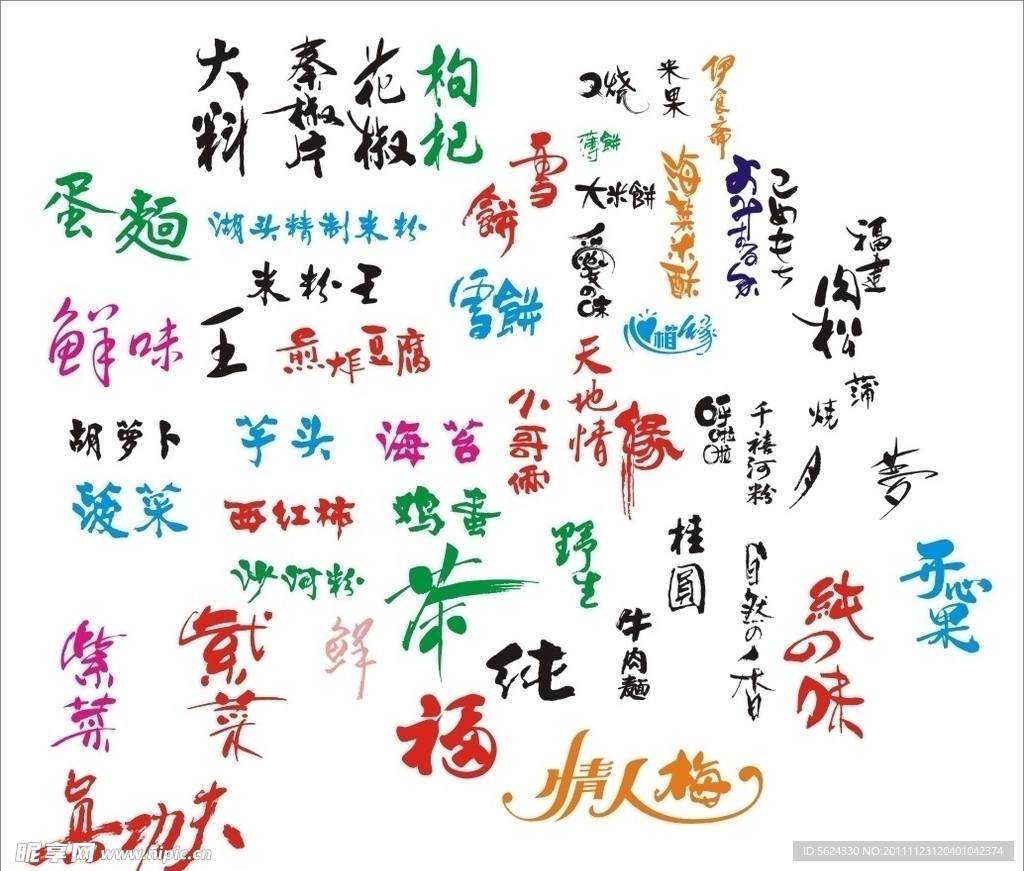 大料
秦椒片
花椒
枸杞
口烧
米果
伊食斋
薄餅
雪
餅
大米餅
海菜米酥
こめもち
蛋麵
湖头精制米粉
愛の味
福建
肉松
米粉王
雪餅
鲜味
王
煎炸豆腐
天地情
缘
小哥俩
呼啦啦
千禧河粉
烧
蒲
夕
夢
胡萝卜
芋头
海苔
菠菜
西红柿
鸡蛋
野生
桂圓
自然の香
純の味
开心果
沙河粉
茶
紫菜
紫菜
鲜
纯
牛肉麵
福
情人梅
真功夫
昵享网 www.nipic.cn
ID:5624330 NO:20111123120401042374